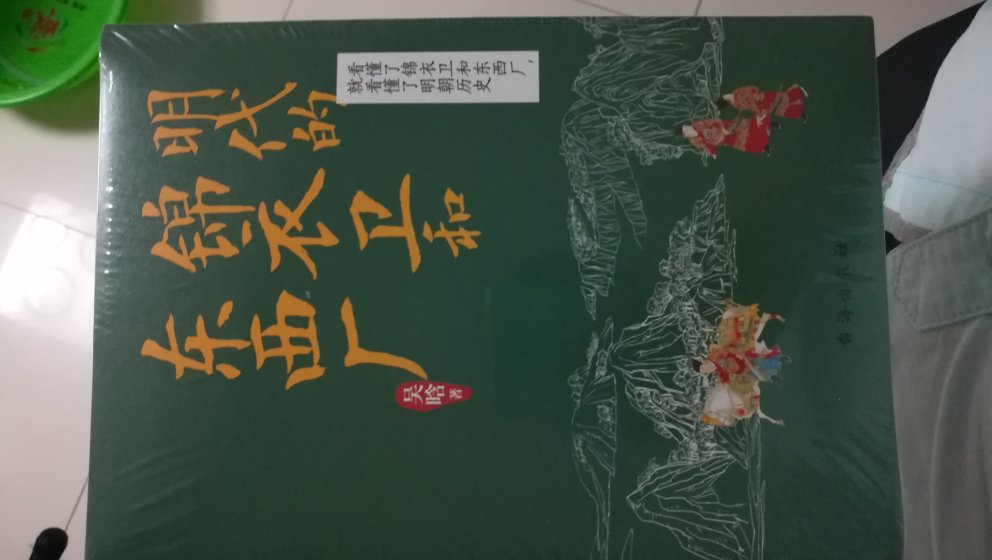 明代的
锦衣卫和
东西厂
看懂了锦衣卫和东西厂，
就看懂了明朝历史
吴晗 著
台海出版社